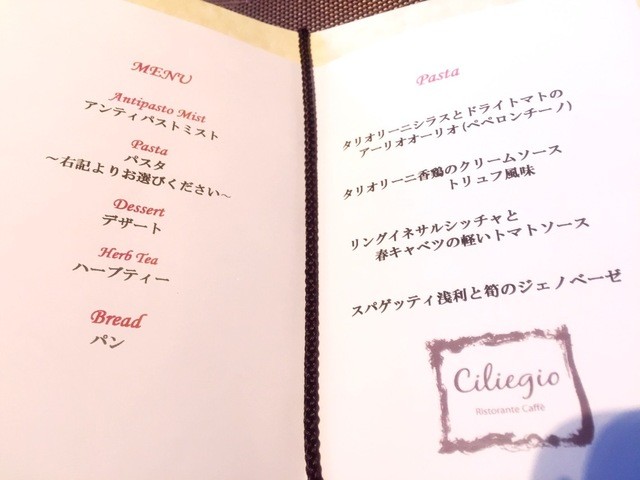 MENU
Antipasto Mist
アンティパストミスト
Pasta
パスタ
～右記よりお選びください～
Dessert
デザート
Herb Tea
ハーブティー
Bread
パン
Pasta
タリオリーニシラスとドライトマトの
アーリオオーリオ(ペペロンチーノ)
タリオリーニ香鶏のクリームソース
トリュフ風味
リングイネサルシッチャと
春キャベツの軽いトマトソース
スパゲッティ浅利と筍のジェノベーゼ
Ciliegio
Ristorante Caffè